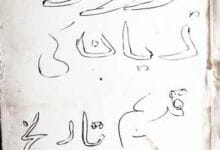 زبان کی
قدیم تاریخ